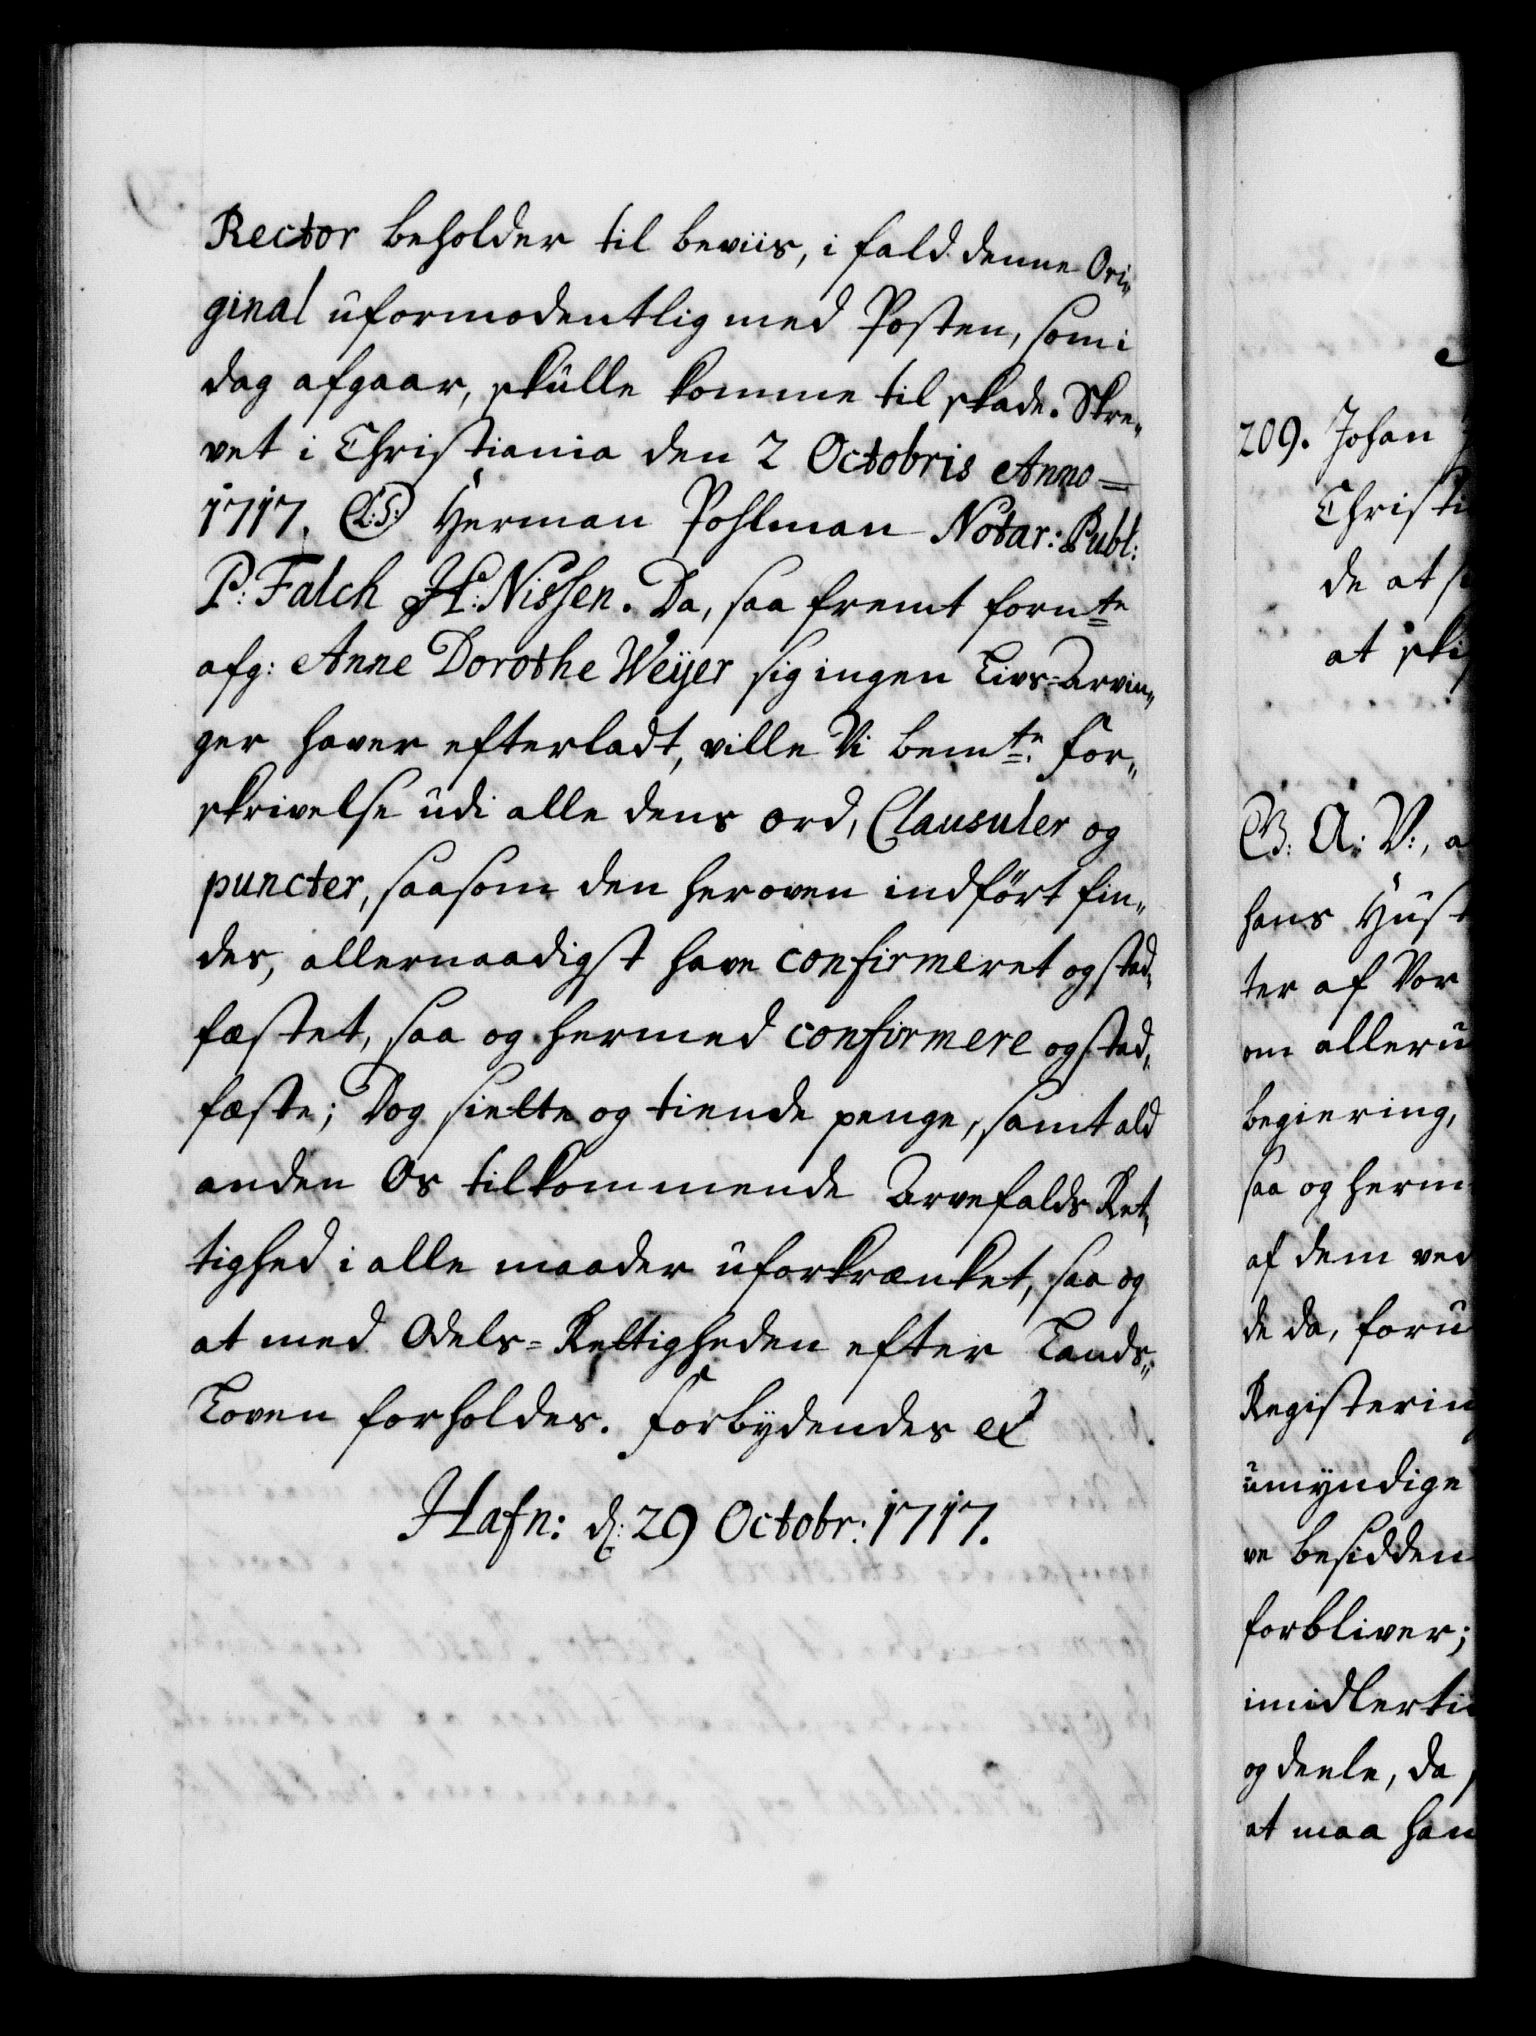 Rector beholder til beviis, i fald denne Ori„
ginal uformodentlig med Posten, som i
dag afgaar, skulle komme til skade. Skre„
vet i Christiania den 2 Octobris Anno
1717. (L:S:) Herman Pohlman Notar: Publ:
P: Falch H: Nissen. Da, saa fremt fornte
afg: Anne Dorothe Weyer sig ingen Livs-Arvin„
ger haver efterladt, ville Vi bemte for„
skrivelse udi alle dens ord, Clausuler og
puncter, saasom den heroven indført fin„
des, allernaadigst have confirmeret og stad„
fæstet, saa og hermed confirmere og stad„
fæste; Dog siette og tiende penge, samt ald
anden Os tilkommende Arvefalds Ret„
tighed i alle maader uforkrænket, saa og
at med Odels-Rettigheden efter Lands„
Loven forholdes. Forbydendes etc
Hafn: d: 29 Octobr: 1717.
209. Johan
Christi
de at s
at ski
G: A: V:, a
hans Hust
ter af Vor
om alleru
begiering,
saa og herm
af dem ved
de da, foru
Registerin
umyndige
ve besidden
forbliver;
imidlerti
og deele, da
at maa han